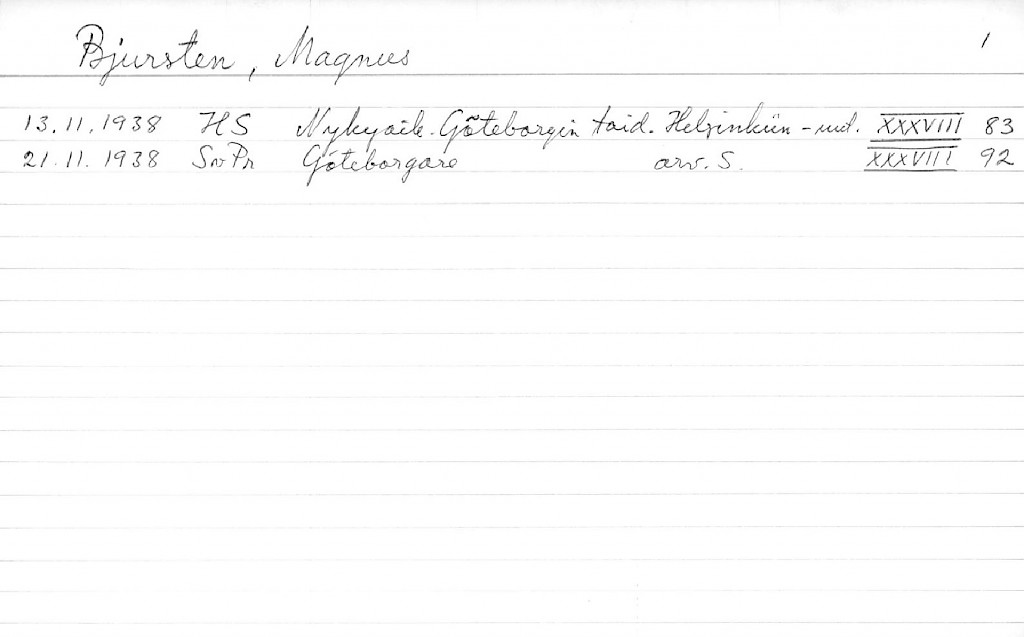 Bjursten, Magnus 1
13.11.1938 HS Nykyaik. Göteborgin taid. Helsinkiin - uut. XXXVIII 83
21.11.1938 Sv Pr Göteborgare arv. S. XXXVIII 92